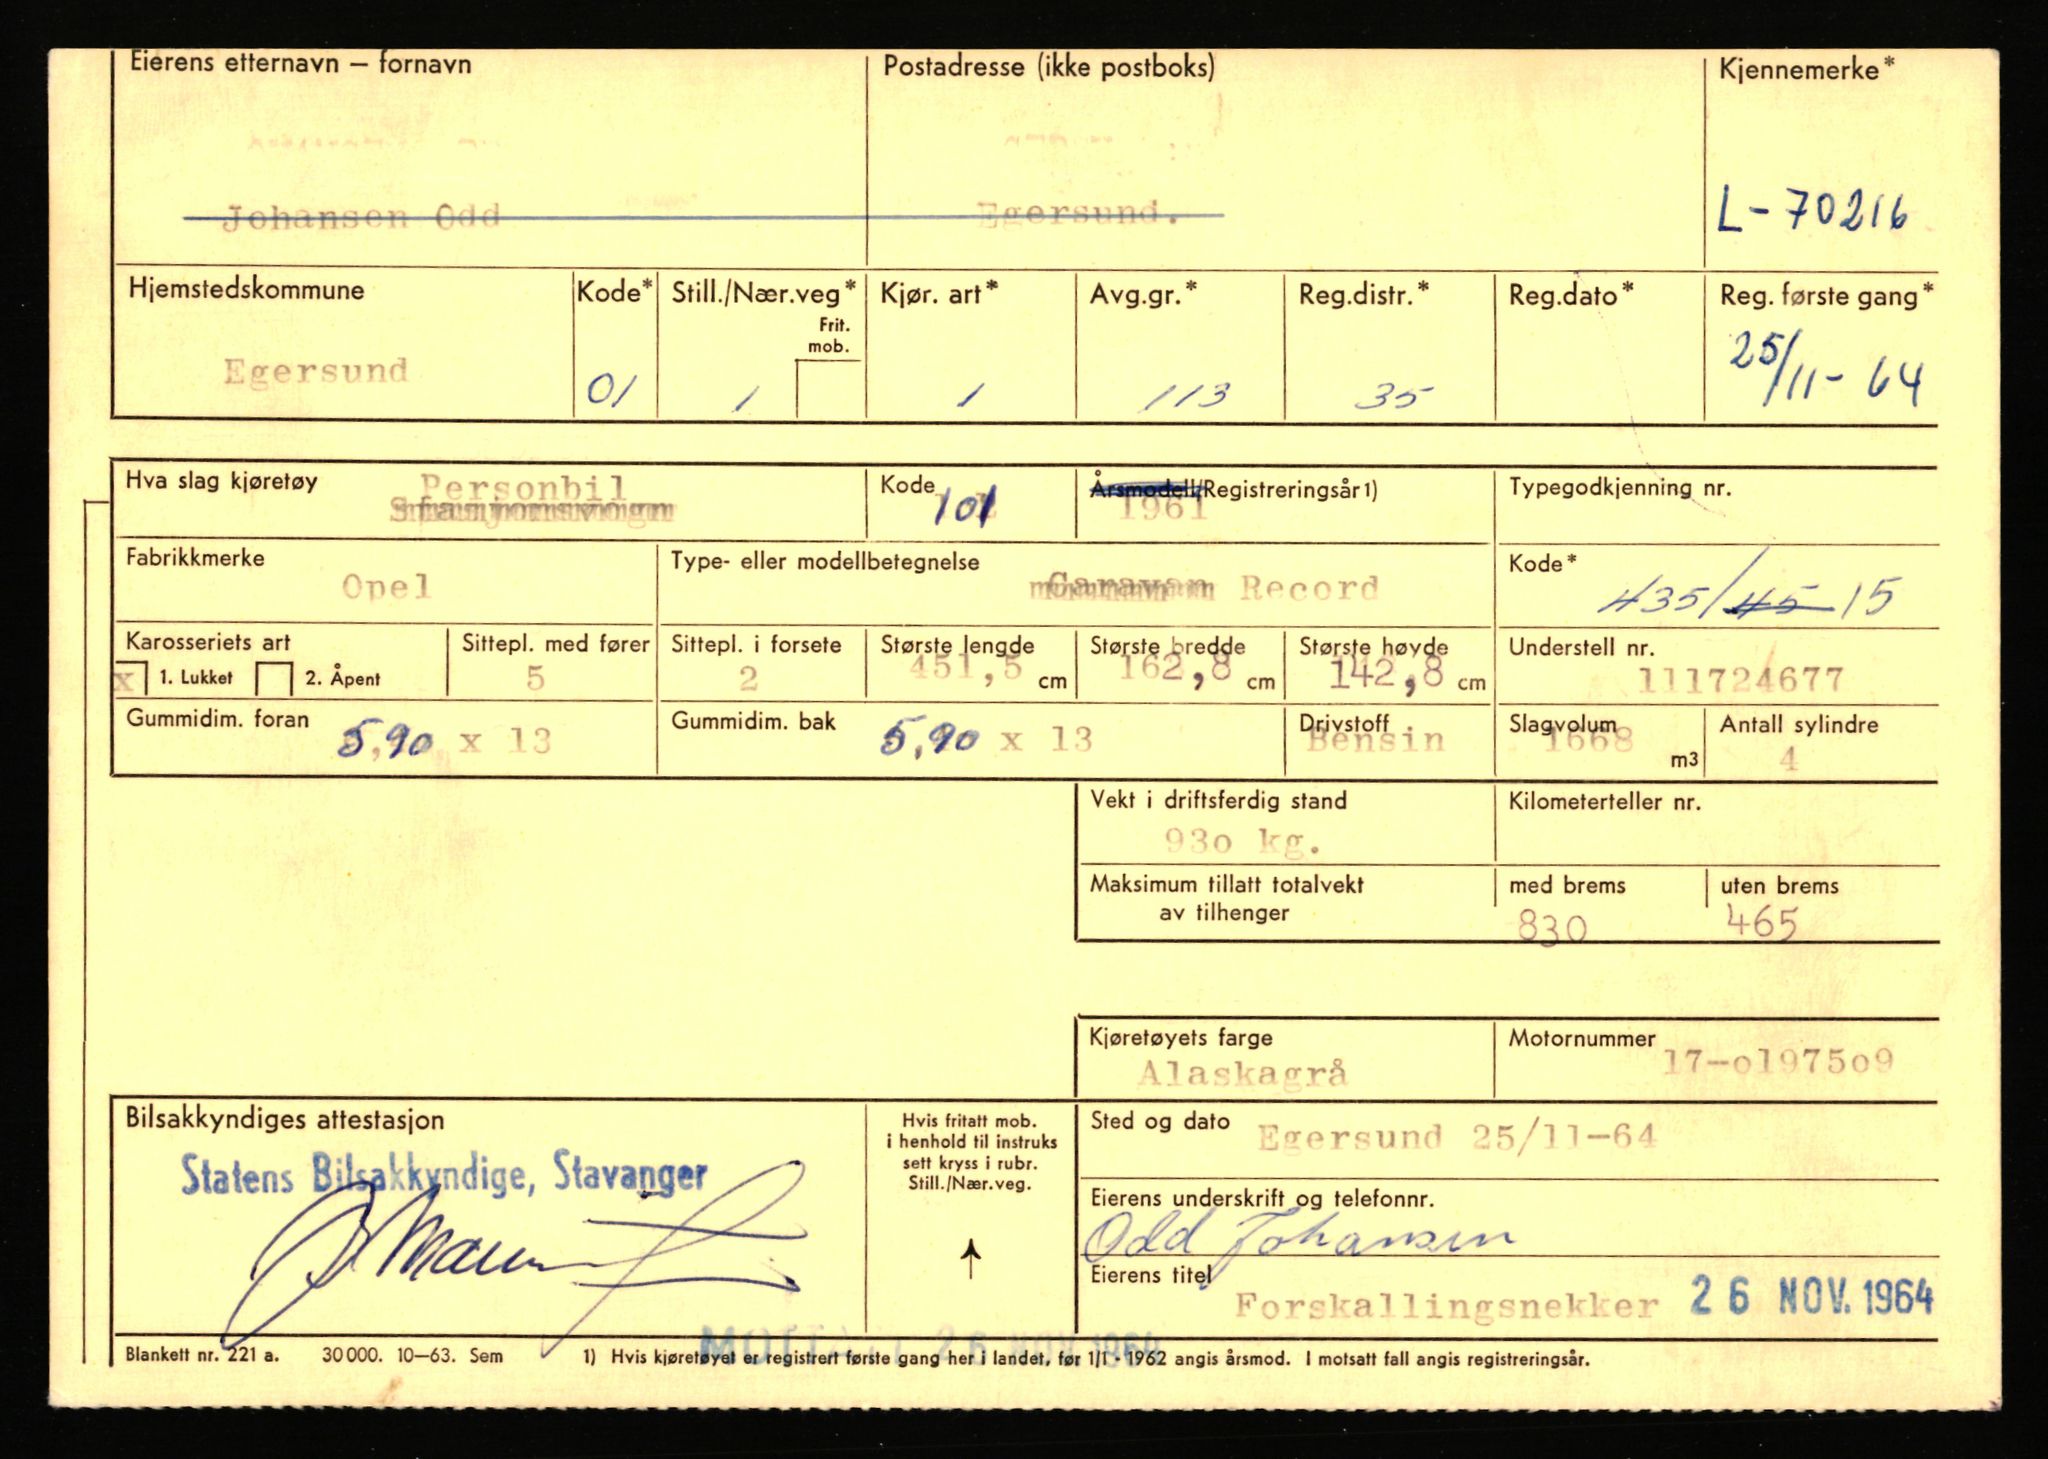 Eierens etternavn – fornavn Postadresse (ikke postboks) Kjennemerke*
Johansen Odd Egersund. L-70216
Hjemstedskommune Kode* Still./Nær.veg* Kjør. art* Avg.gr.* Reg.distr.* Reg.dato* Reg. første gang*
Frit.
mob.
Egersund 01 1 1 113 35 25/11-64
Hva slag kjøretøy Personbil Kode 101 Årsmodell/Registreringsår 1) Typegodkjenning nr.
Stasjonsvogn 1961
Fabrikkmerke Type- eller modellbetegnelse Kode*
Opel Caravan Record 435/45 15
Karosseriets art Sittepl. med fører Sittepl. i forsete Største lengde Største bredde Største høyde Understell nr.
x 1. Lukket 2. Åpent 5 2 451,5 cm 162,8 cm 142,8 cm 111724677
Gummidim. foran 5,90 x 13 Gummidim. bak 5,90 x 13 Drivstoff Slagvolum Antall sylindre
Bensin 1668 m3 4
Vekt i driftsferdig stand Kilometerteller nr.
930 kg.
Maksimum tillatt totalvekt med brems uten brems
av tilhenger 830 465
Kjøretøyets farge Motornummer
Alaskagrå 17-0197509
Bilsakkyndiges attestasjon
Statens Bilsakkyndige, Stavanger
Hvis fritatt mob.
i henhold til instruks
sett kryss i rubr.
Still./Nær.veg.
Sted og dato Egersund 25/11-64
Eierens underskrift og telefonnr.
Odd Johansen
Eierens titel
Forskallingsnekker 26 NOV. 1964
26 NOV 1964
Blankett nr. 221 a. 30000. 10–63. Sem 1) Hvis kjøretøyet er registrert første gang her i landet, før 1/1 - 1962 angis årsmod. I motsatt fall angis registreringsår.